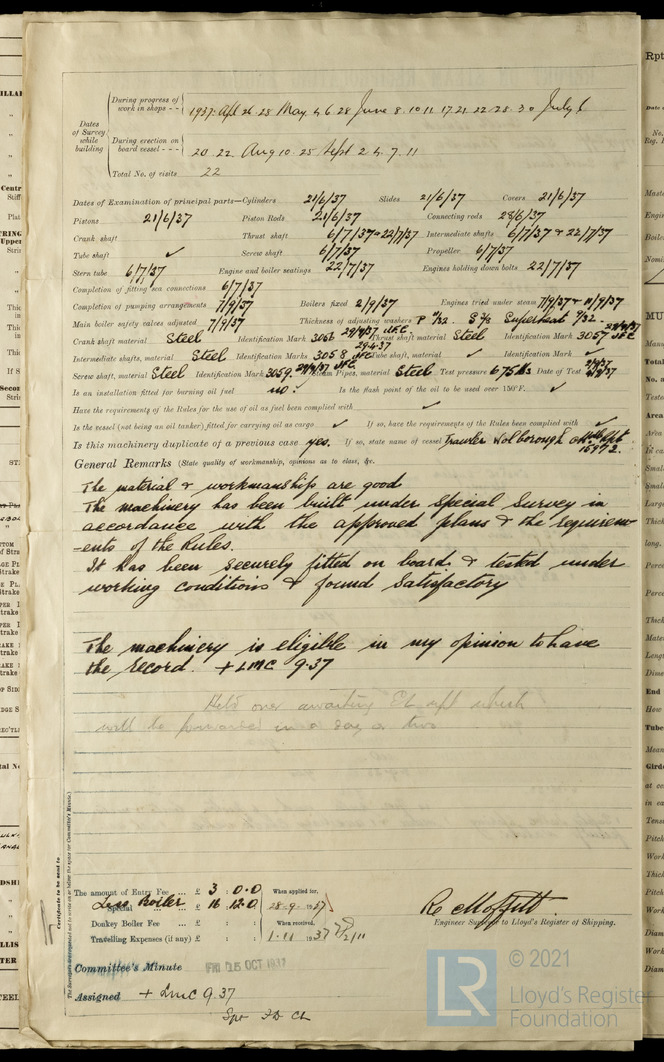 During progress of work in shops - - 1937. Apl 26 28 May 4 6 28 June 8. 10. 11. 17. 21. 22. 28. 30 July 6
Dates of Survey while building
During erection on board vessel - - - 20 22. Aug 10. 25 Sept 2 4. 7. 11
Total No. of visits 22
Dates of Examination of principal parts—Cylinders 21/6/37 Slides 21/6/37 Covers 21/6/37
Pistons 21/6/37 Piston Rods 21/6/37 Connecting rods 28/6/37
Crank shaft Thrust shaft 6/7/37 & 22/7/37 Intermediate shafts 6/7/37 & 22/7/37
Tube shaft ✓ Screw shaft 6/7/37 Propeller 6/7/37
Stern tube 6/7/37 Engine and boiler seatings 22/7/37 Engines holding down bolts 22/7/37
Completion of fitting sea connections 6/7/37
Completion of pumping arrangements 7/9/37 Boilers fixed 2/9/37 Engines tried under steam 7/9/37 & 11/9/37
Main boiler safety valves adjusted 7/9/37 Thickness of adjusting washers P 9/32. S 9/32 Superheat 9/32.
Crank shaft material Steel Identification Mark 3056 Thrust shaft material Steel Identification Mark 3057
Intermediate shafts, material Steel Identification Marks 3058 Tube shaft, material ✓ Identification Mark ✓
Screw shaft, material Steel Identification Mark 3059. Steam Pipes, material Steel Test pressure 675 lbs Date of Test
Is an installation fitted for burning oil fuel no. Is the flash point of the oil to be used over 150°F. ✓
Have the requirements of the Rules for the use of oil as fuel been complied with ✓
Is the vessel (not being an oil tanker) fitted for carrying oil as cargo ✓ If so, have the requirements of the Rules been complied with ✓
Is this machinery duplicate of a previous case yes. If so, state name of vessel Trawler Holborough
General Remarks (State quality of workmanship, opinions as to class, &c.
The material & workmanship are good
The machinery has been built under Special Survey in
accordance with the approved plans & the requirem-
-ents of the Rules.
It has been securely fitted on board, & tested under
working conditions & found satisfactory
The machinery is eligible in my opinion to have
the record. + LMC 9.37
Held over awaiting which
will be forwarded in a day or two
Certificate to be sent to
The amount of Entry Fee ... £ 3 : 0. 0 When applied for,
Less Boiler Special ... £ 16. 12. 0 28-9-1937
Donkey Boiler Fee ... £ : : When received,
Travelling Expenses (if any) £ : : 1-11 1937
Engineer Surveyor to Lloyd's Register of Shipping.
Committee's Minute FRI 15 OCT 1937
Assigned + LMC 9.37
FD CL
LR
© 2021
Lloyd's Register
Foundation